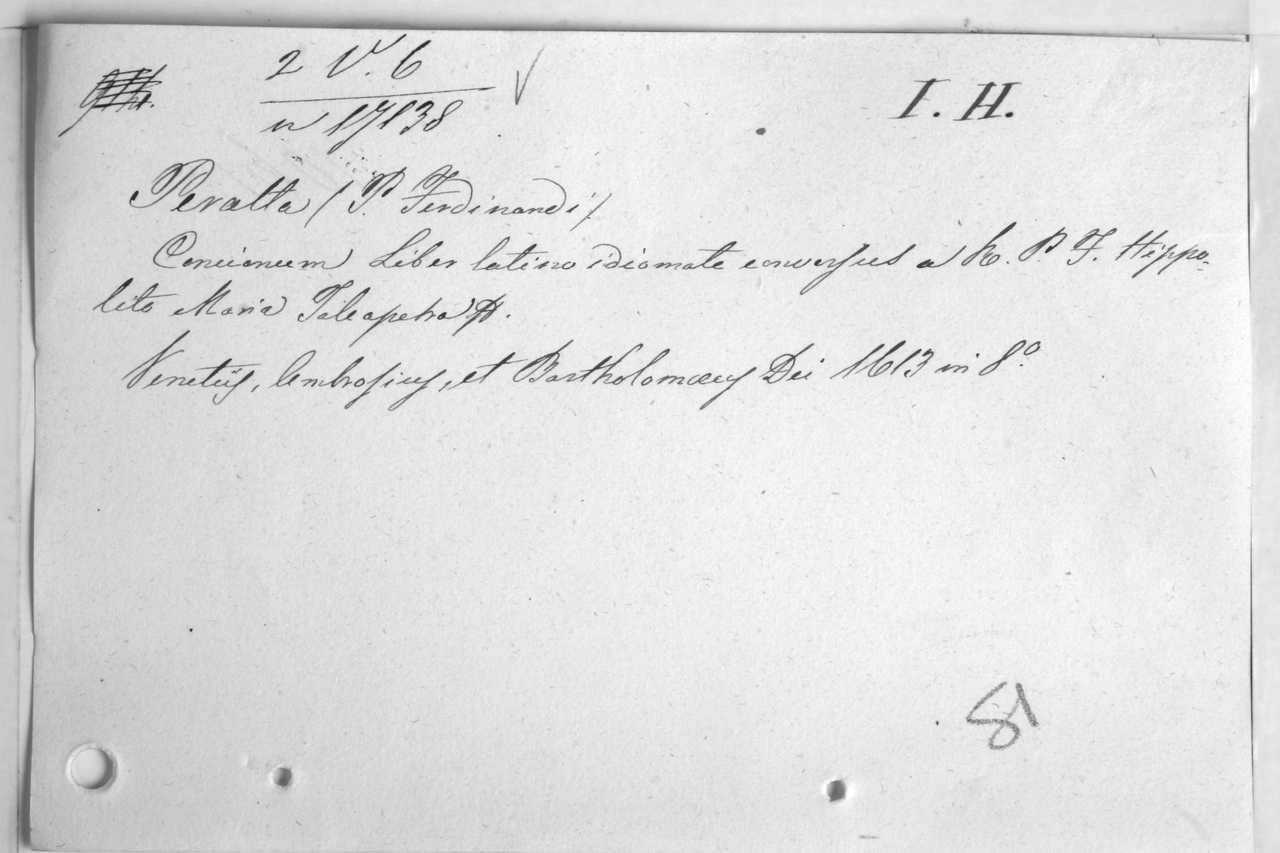 2 V. 6
n 17138
I. H.
Peralta (P. Ferdinandi)
Concionum Liber latino idiomate conversus a R. P. F. Hippo-
lito Maria Taleapetra
Venetijs, Ambrosius, et Bartholomæus Dei 1613 in 8º
81